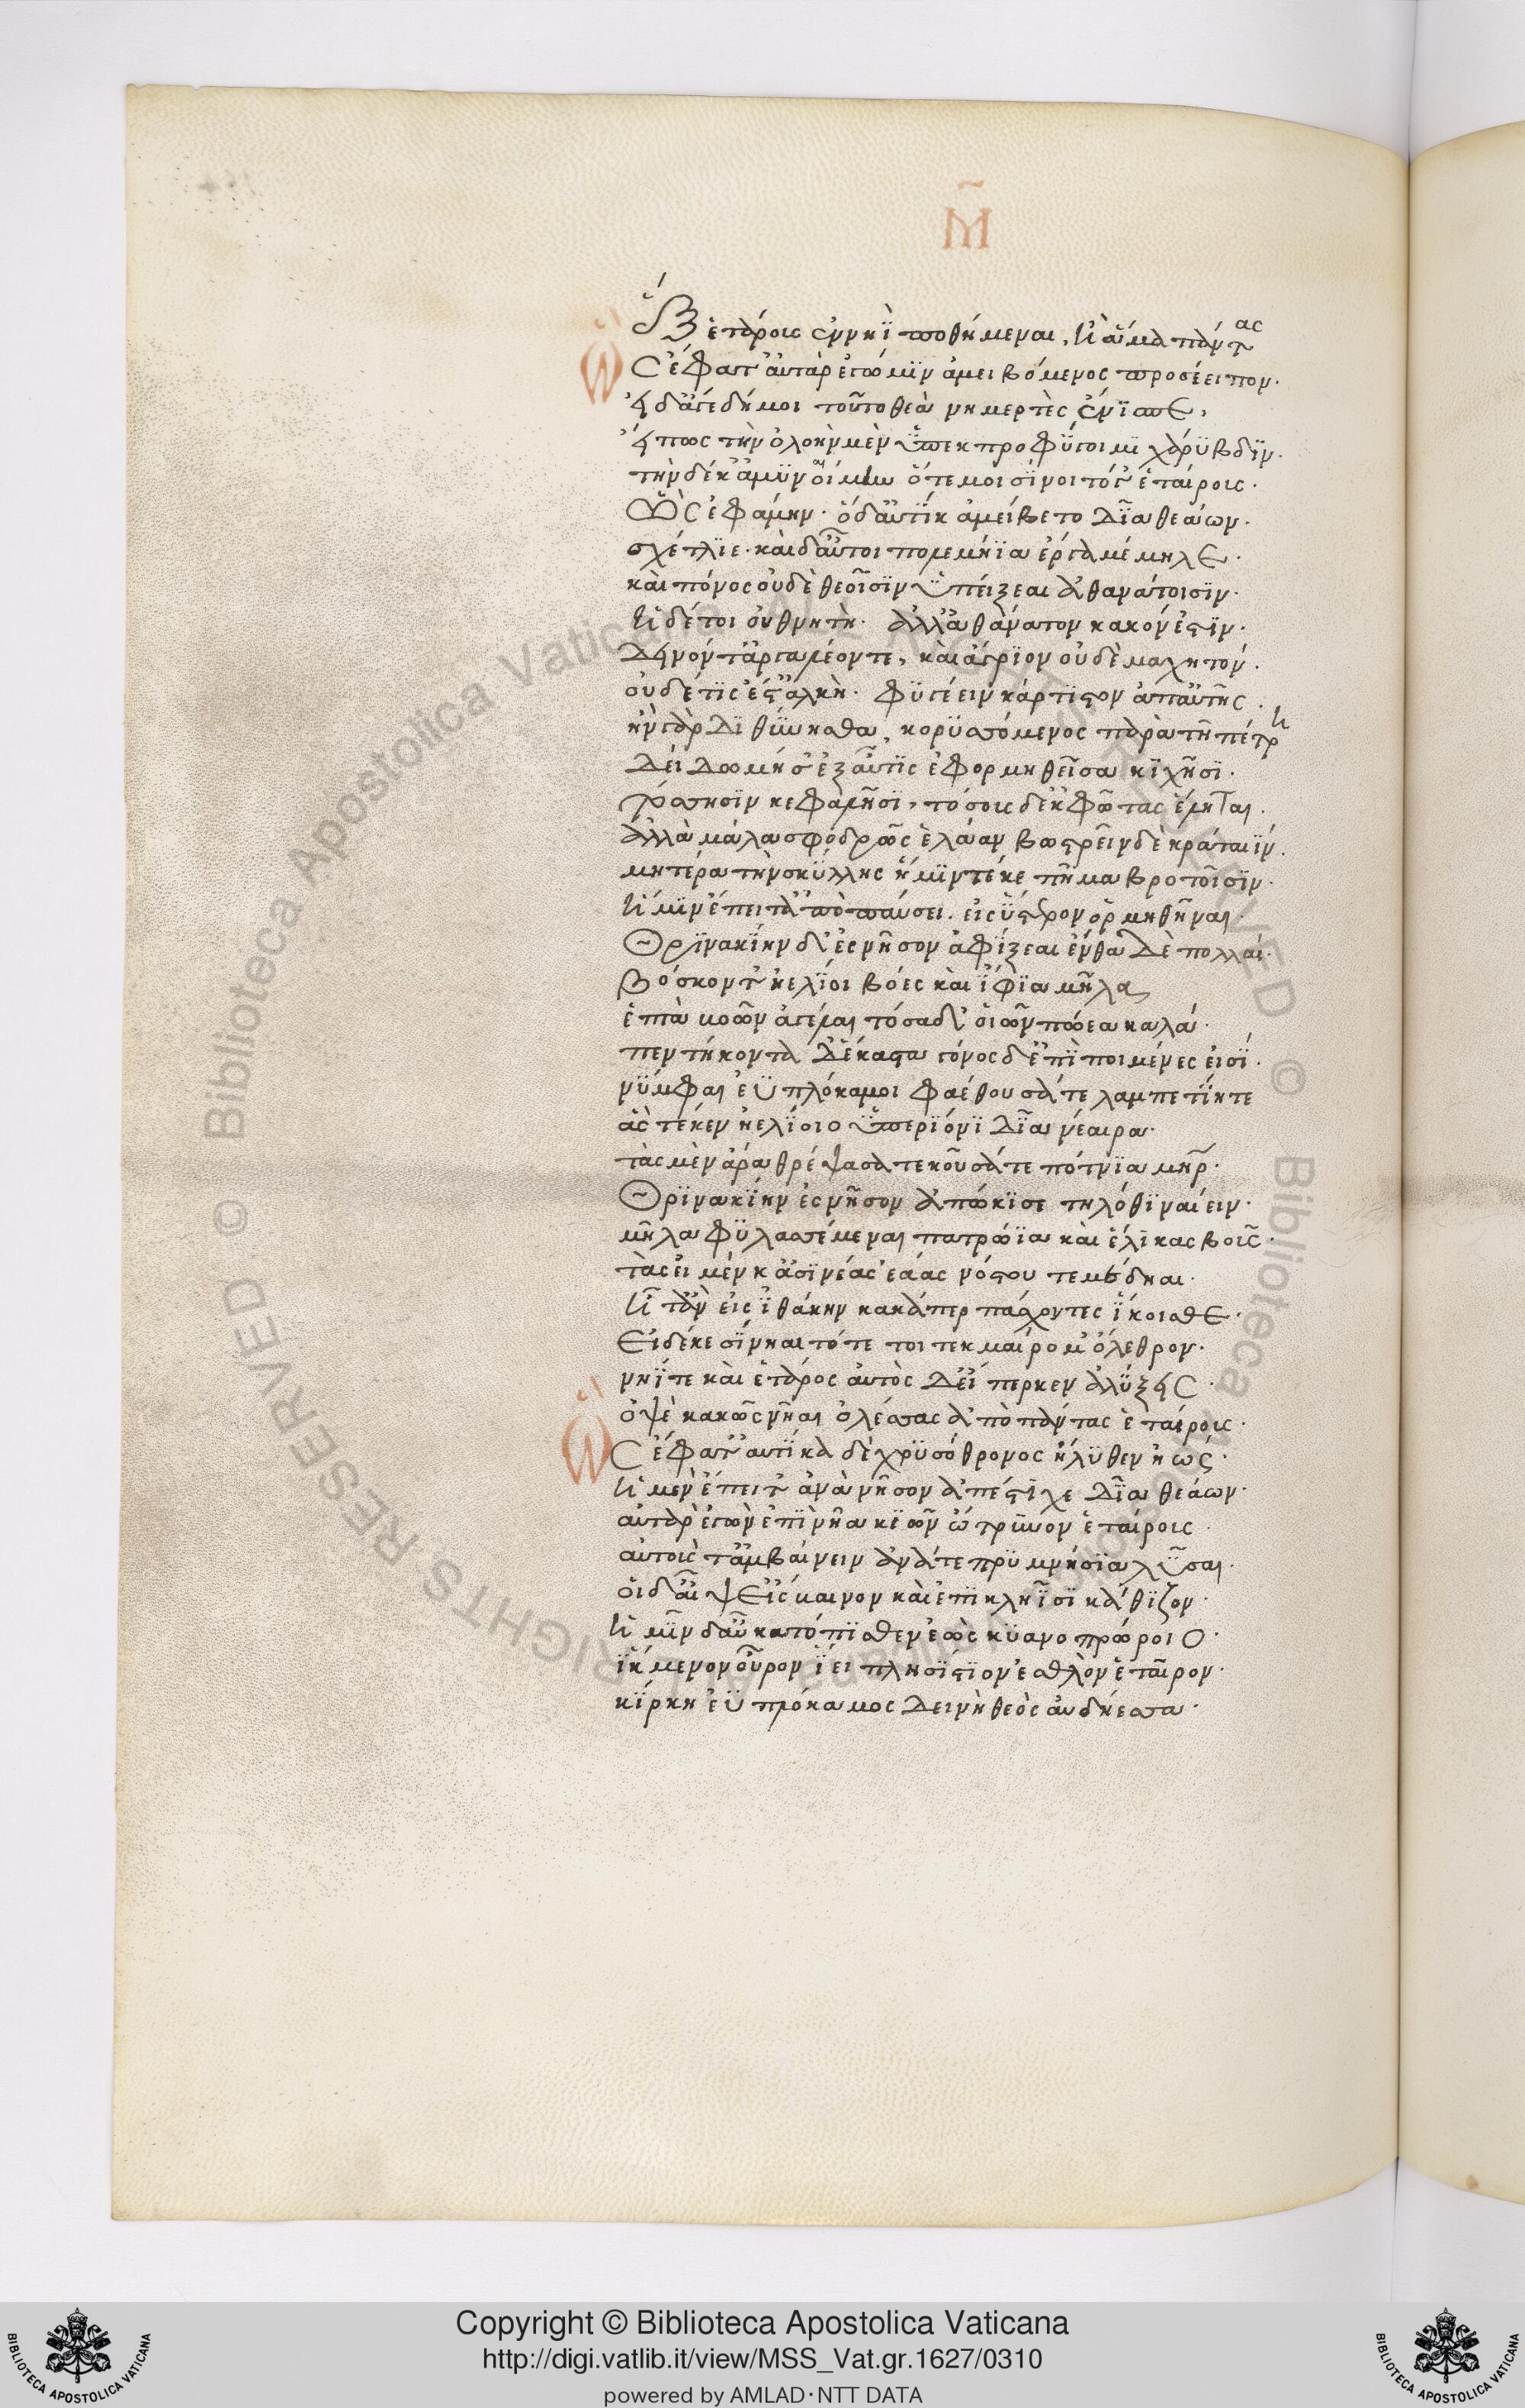 Μ̃
ἓξ ἑτάροις ἐν νηῒ ποθήμεναι, ἢ ἅμα πάντας
Ὣς ἔφατ' αὐτὰρ ἐγώ μϊν ἀμειβόμενος προσέειπον.
εἰ δ' ἄγε δή μοι τοῦτο θεὰ νημερτὲς ἔνϊσπε,
εἴ πως τὴν ὀλοὴν μὲν ὑπεκπροφύγοιμϊ χάρυβδϊν.
τὴν δέ κ' ἀμυναίμην ὅτε μοι σίνοιτό γ' ἑταίροις.
Ὣς ἐφάμην. ἡ δ' αὐτίκ' ἀμείβετο δῖα θεάων.
σχέτλϊε. καὶ δ' αὖ τοι πολεμήϊα ἔργα μέμηλε.
καὶ πόνος οὐδὲ θεοῖσϊν ὑπείξεαι ἀθανάτοισϊν.
ἡ δέ τοι οὐ θνητὴ. ἀλλ' ἀθάνατον κακόν ἐστϊν.
δεινόν τ' ἀργαλέον τε, καὶ ἄγρϊον οὐδὲ μαχητόν.
οὐδέ τϊς ἔστ' ἀλκὴ. φυγέειν κάρτϊστον ἀπ' αὐτῆς.
ἢν γὰρ δϊθύνησθα, κορυσσόμενος παρὰ τῆ πέτρη
δείδω μή σ' ἐξαῦτϊς ἐφορμηθεῖσα κϊχῆσϊ.
τόσσησϊν κεφαλῆσϊ, τόσοις δ' ἐκ φῶτας ἕληται.
ἀλλὰ μάλα σφοδρῶς ἐλάαν βωστρεῖν δὲ κράταιϊν.
μητέρα τὴν σκύλλης ἥ μϊν τέκε πῆμα βροτοῖσϊν.
ἥ μϊν ἔπειτ' ἀποπαύσει. εἰς ὕστερον ὁρμηθῆναι.
Θρϊνακίην δ' ἐς νῆσον ἀφίξεαι ἔνθα δὲ πολλαί.
βόσκοντ' ἠελίοι βόες καὶ ἴφϊα μῆλα
ἑπτὰ βοῶν ἀγέλαι τόσα δ' οἰῶν πώεα καλά.
πεντήκοντα δ' ἕκαστα γόνος δ' ἐπϊποιμένες εἰσΐ.
νύμφαι ἐϋπλόκαμοι φαέθουσά τε λαμπετίη τε
ἃς τέκεν ἠελίοιο ὑπερϊόνϊ δῖα νέαιρα.
τὰς μὲν ἄρα θρέψασα τεκοῦσά τε πότνϊα μήτηρ.
Θρϊνακίην ἐς νῆσον ἀπώκϊσε τηλόθϊ ναίειν.
μῆλα φυλασσέμεναι πατρώϊα καὶ ἕλϊκας βοῦς.
τὰς εἰ μέν κ' ἀσϊνέας ἐάας νόστου τε μέδηαι.
ἦ τ' ἂν εἰς ἰθάκην κακά περ πάσχοντες ἵκοισθε.
Εἰ δέ κε σίνηαι τότε τοι τεκμαίρομ' ὄλεθρον.
νηΐ τε καὶ ἑτάροις αὐτὸς δ' εἴπερ κεν ἀλύξεις.
ὀψὲ κακῶς νῆαι ὀλέσσας ἄπο πάντας ἑταίροις.
Ὣς ἔφατ' αὐτίκα δὲ χρυσόθρονος ἤλυθεν ἠώς.
ἡ μὲν ἔπειτ' ἀνὰ νῆσον ἀπέστϊχε δῖα θεάων.
αὐτὰρ ἐγὼν ἐπϊ νῆα κϊὼν ὤτρυνον ἑταίροις.
αὐτοίς τ' ἀμβαίνειν ἀνά τε πρυμνήσϊα λῦσαι.
οἱ δ' αἶψ' εἴσβαινον καὶ ἐπϊ κληῗσϊ κάθϊζον.
ἡμῖν δ' αὖ κατόπϊσθεν νεὼς κυανοπρώροιο.
ἴκμενον οὖρον ἵει πλησίστϊον ἐσθλὸν ἑταῖρον.
κίρκη ἐϋπλόκαμος δεινὴ θεὸς αὐδήεσσα.
Copyright © Biblioteca Apostolica Vaticana
http://digi.vatlib.it/view/MSS_Vat.gr.1627/0310
powered by AMLAD·NTT DATA